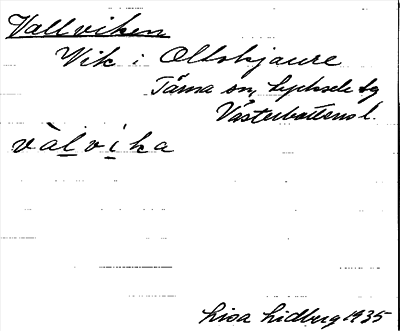 Vallviken
Vik i Ollskjaure
Tärna sn, Lycksele lg
Västerbottens l.
vàlvíka
Lisa Lidberg 1935